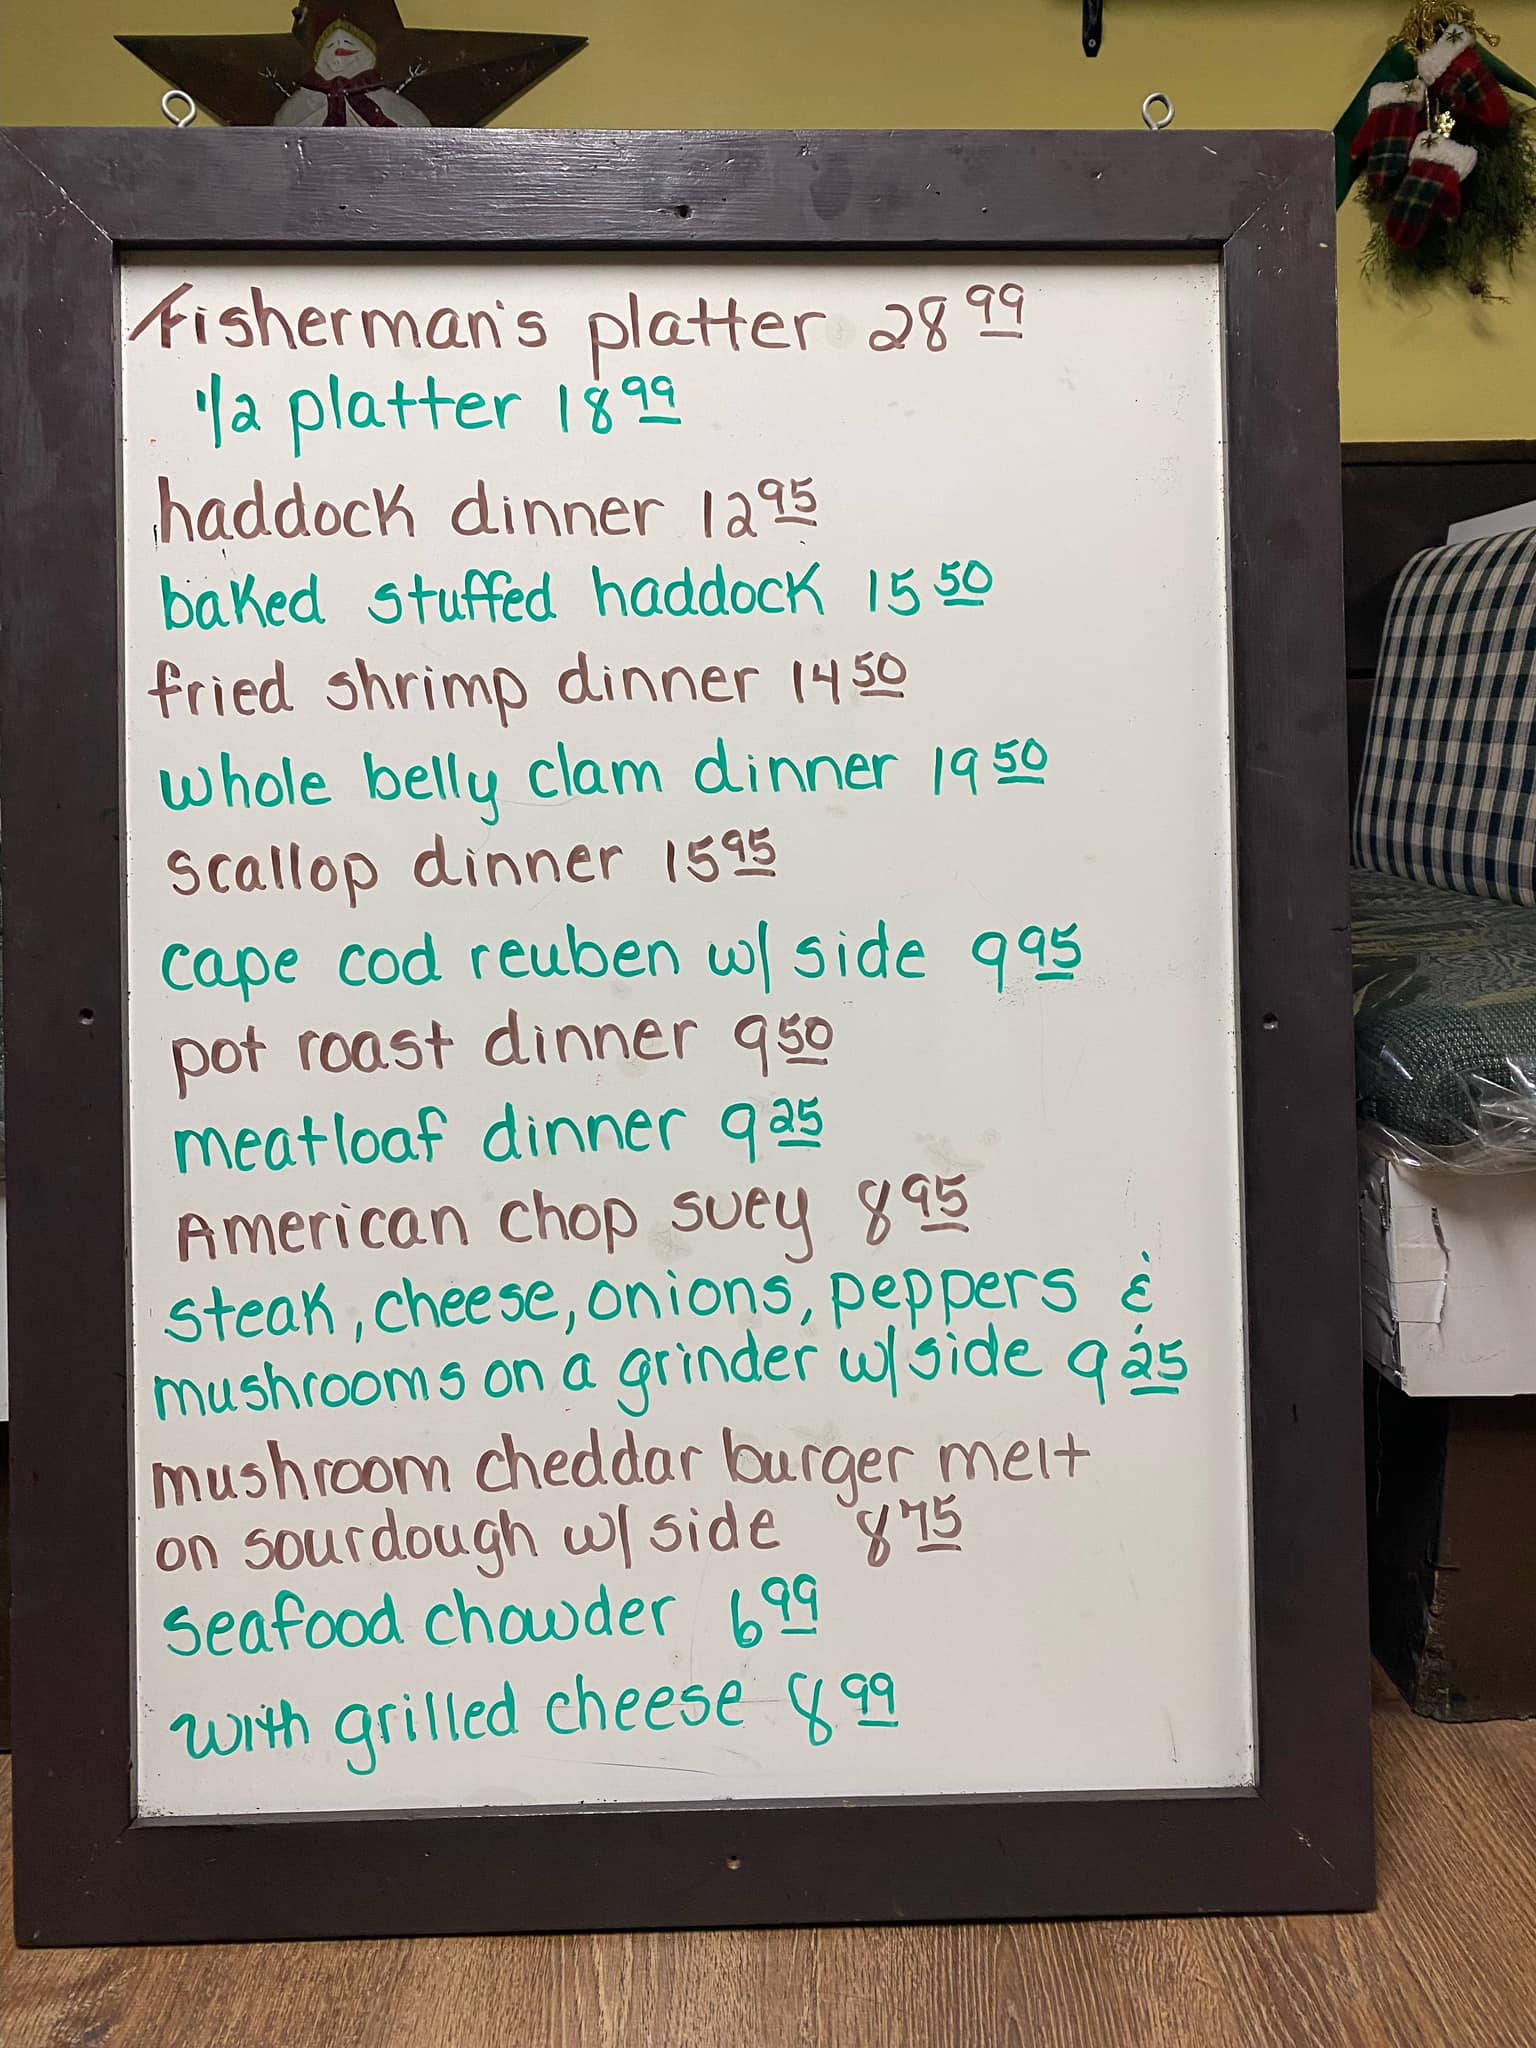 Fisherman's platter 28 99
1/2 platter 18 99
haddock dinner 12 95
baked stuffed haddock 15 50
fried shrimp dinner 14 50
whole belly clam dinner 19 50
scallop dinner 15 95
cape cod reuben w/ side 9 95
pot roast dinner 9 50
meatloaf dinner 9 25
American chop suey 8 95
steak, cheese, onions, peppers &
mushrooms on a grinder w/ side 9 25
mushroom cheddar burger melt
on sourdough w/ side 8 75
seafood chowder 6 99
with grilled cheese 8 99